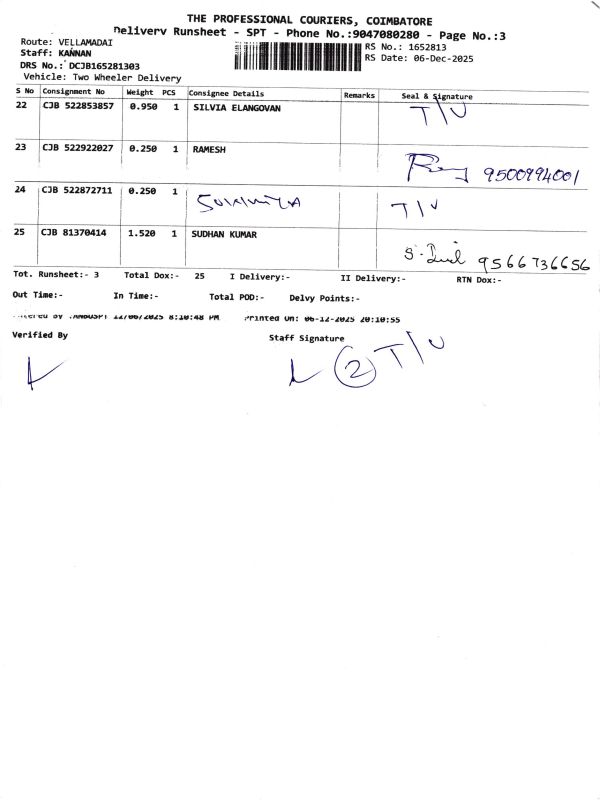 THE PROFESSIONAL COURIERS, COIMBATORE
Delivery Runsheet - SPT - Phone No.:9047080280 - Page No.:3
Route: VELLAMADAI
RS No.: 1652813
Staff: KANNAN
RS Date: 06-Dec-2025
DRS No.: DCJB165281303
Vehicle: Two Wheeler Delivery
S No Consignment No Weight PCS Consignee Details Remarks Seal & Signature
22 CJB 522853857 0.950 1 SILVIA ELANGOVAN T/U
23 CJB 522922027 0.250 1 RAMESH 9500994001
24 CJB 522872711 0.250 1 T/U
25 CJB 81370414 1.520 1 SUDHAN KUMAR 9566736656
Tot. Runsheet:- 3 Total Dox:- 25 I Delivery:- II Delivery:- RTN Dox:-
Out Time:- In Time:- Total POD:- Delvy Points:-
12/06/2025 8:10:48 PM Printed On: 06-12-2025 20:10:55
Verified By Staff Signature
2 T/U